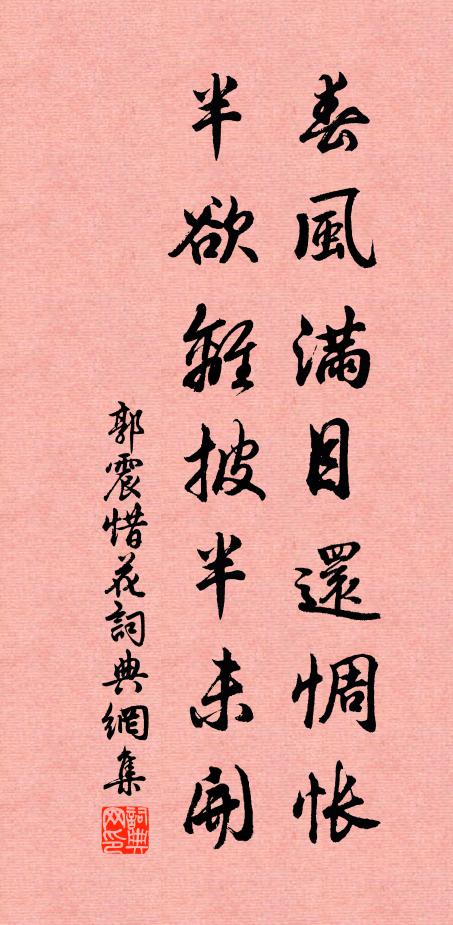 春風滿目還惆悵
半欲離披半未開
郭震惜花詞典網集
詞典网印